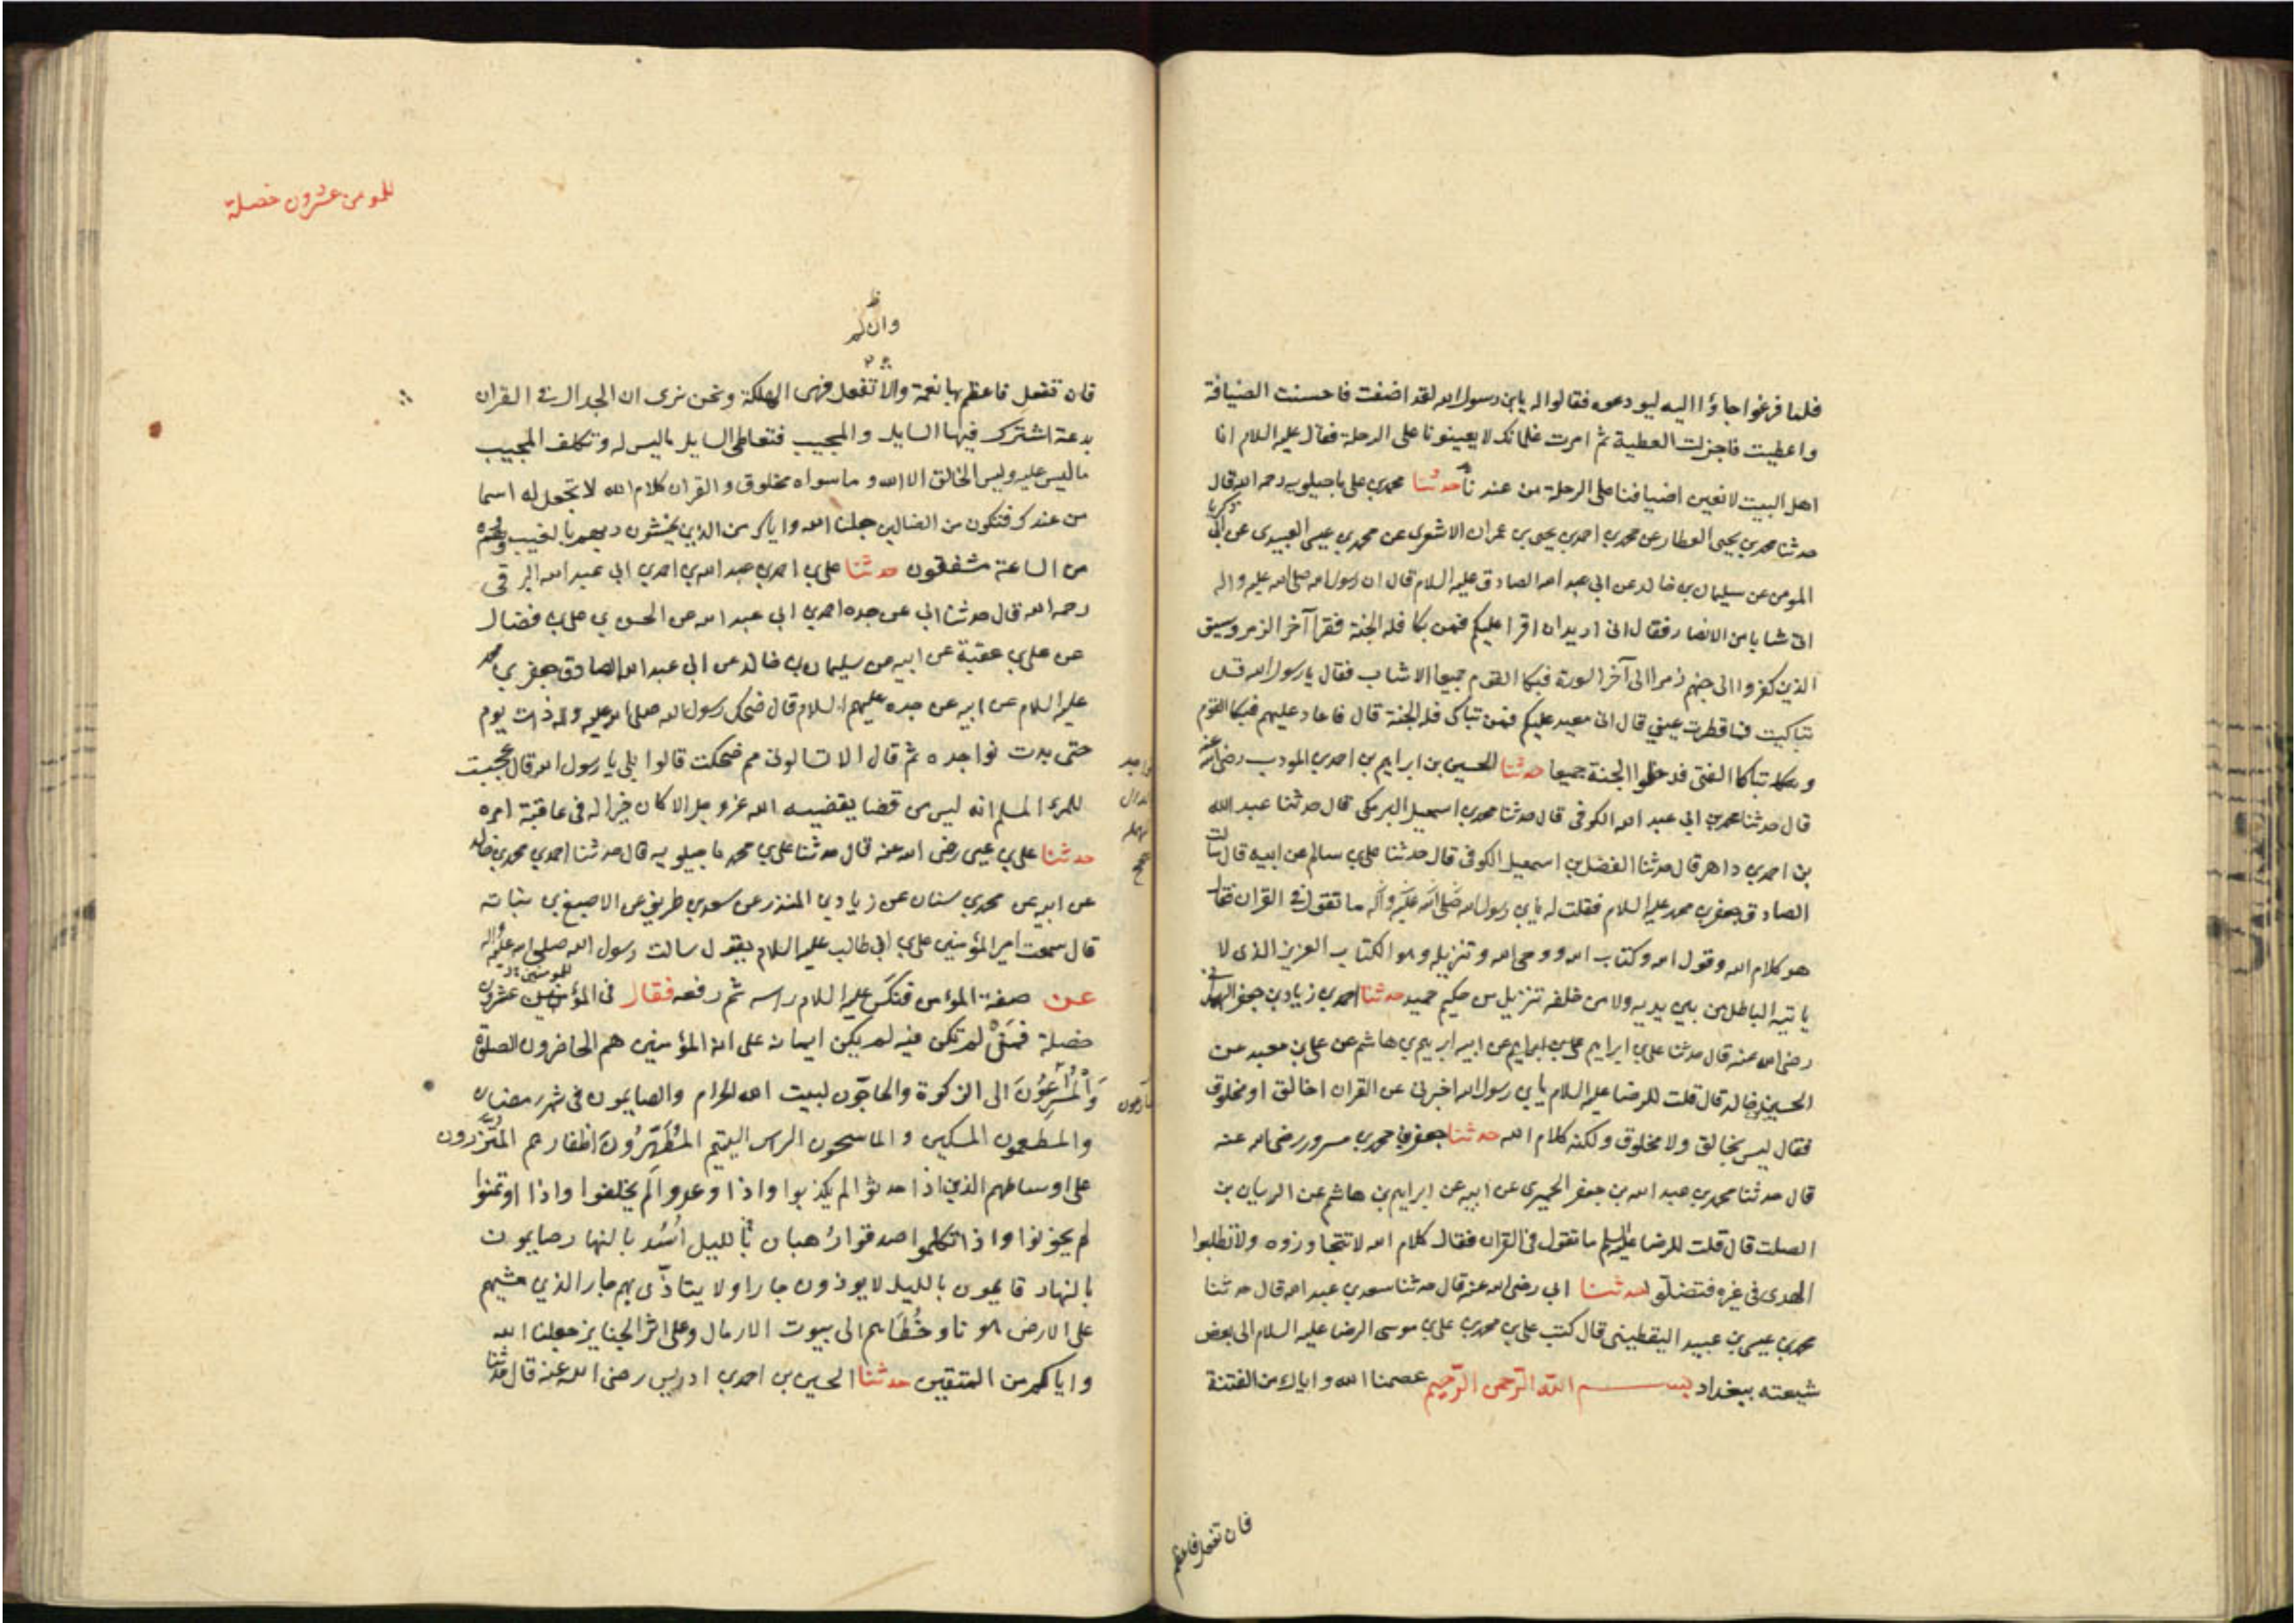 فلما فرغوا جاؤا اليه ليودعوه فقالوا له يابن رسول الله لقد اضفت فاحسنت الضيافة
واعطيت فاجزلت العطية ثم امرت غلمانك لا يعينونا على الرحلة فقال عليه السلام انا
اهل البيت لا نعين اضيافنا على الرحلة من عندنا حدثنا محمد بن على ماجيلويه رحمه الله قال
حدثنا محمد بن يحيى العطار عن محمد بن احمد بن يحيى بن عمران الاشعرى عن محمد بن عيسى العبيدى عن ابي زكريا
المومن عن سليمان بن خالد عن ابى عبد الله الصادق عليه السلام قال ان رسول الله صلى الله عليه واله
اتى شبابا من الانصار فقال انى اريد ان اقرا عليكم فمن بكا فله الجنة فقرا آخر الزمر وسيق
الذين كفروا الى جهنم زمرا الى آخر السورة فبكا القوم جميعا الا شاب فقال يا رسول الله قد
تباكيت فما قطرت عينى قال انى معيد عليكم فمن تباكى فله الجنة قال فاعاد عليهم فبكا القوم
وتباكا الفتى فدخلوا الجنة جميعا حدثنا الحسين بن ابراهيم بن احمد بن المودب رضى الله عنه
قال حدثنا محمد بن ابى عبد الله الكوفى قال حدثنا محمد بن اسمعيل البرمكى قال حدثنا عبد الله
بن احمد بن داهر قال حدثنا الفضل بن اسمعيل الكوفى قال حدثنا على بن سالم عن ابيه قال سالت
الصادق جعفر بن محمد عليه السلام فقلت له يابن رسول الله صلى الله عليه وآله ما تقول فى القران فقال
هو كلام الله وقول الله وكتاب الله ووحى الله وتنزيله وهو الكتاب العزيز الذى لا
ياتيه الباطل من بين يديه ولا من خلفه تنزيل من حكيم حميد حدثنا احمد بن زياد بن جعفر الهمدانى
رضى الله عنه قال حدثنا على بن ابراهيم عن ابيه ابراهيم بن هاشم عن على بن معبد عن
الحسين بن خالد قال قلت للرضا عليه السلام يابن رسول الله اخبرنى عن القران اخالق او مخلوق
فقال ليس بخالق ولا مخلوق ولكنه كلام الله حدثنا جعفر بن محمد بن مسرور رضى الله عنه
قال حدثنا محمد بن عبد الله بن جعفر الحميرى عن ابيه عن ابراهيم بن هاشم عن الريان بن
الصلت قال قلت للرضا عليه السلم ما تقول فى القران فقال كلام الله لا تتجاوزوه ولا تطلبوا
الهدى فى غيره فتضلوا حدثنا ابى رضى الله عنه قال حدثنا سعد بن عبد الله قال حدثنا
محمد بن عيسى بن عبيد اليقطينى قال كتب على بن محمد بن على بن موسى الرضا عليه السلام الى بعض
شيعته ببغداد بسم الله الرحمن الرحيم عصمنا الله واياك من الفتنة
فان تفعل فاعظم
للمومن عشرون خصلة
ظ
وان لم
فان تفعل فاعظم بها نعمة والا تفعل فهى الهلكة ونحن نرى ان الجدال فى القران
بدعة اشترك فيها السايل والمجيب فتعاطى السايل ما ليس له وتكلف المجيب
ما ليس عليه وليس الخالق الا الله وما سواه مخلوق والقران كلام الله لا تجعل له اسما
من عندك فتكون من الضالين جعلنا الله واياك من الذين يخشون ربهم بالغيب وهم
من الساعة مشفقون حدثنا على بن احمد بن عبد الله بن احمد بن ابى عبد الله البرقى
رحمه الله قال حدثنا ابى عن جده احمد بن ابى عبد الله عن الحسن بن على بن فضال
عن على بن عقبة عن ابيه عن سليمان بن خالد عن ابى عبد الله الصادق جعفر بن محمد
عليه السلام عن ابيه عن جده عليهم السلام قال ضحك رسول الله صلى الله عليه واله ذات يوم
حتى بدت نواجده ثم قال الا تسالونى مم ضحكت قالوا بلى يا رسول الله قال عجبت
للمرء المسلم انه ليس من قضا يقضيه الله عز وجل الا كان خيرا له فى عاقبة امره
حدثنا على بن عيسى رضى الله عنه قال حدثنا على بن محمد ماجيلويه قال حدثنا احمد بن محمد بن خالد
عن ابيه عن محمد بن سنان عن زياد بن المنذر عن سعد بن طريف عن الاصبغ بن نباته
قال سمعت امير المؤمنين على بن ابى طالب عليه السلام يقول سالت رسول الله صلى الله عليه واله
عن صفة المؤمن فنكس عليه السلام راسه ثم رفعه فقال فى المؤمنين عشرون
خصلة فمن لم تكن فيه لم يكن ايمانه على ان المؤمنين هم الحاضرون الصلوة
والمسرعون الى الزكوة والحاجون لبيت الله الحرام والصايمون فى شهر رمضان
والمطعمون المسكين والماسحون الراس اليتيم المطهرون اظفارهم المتزرون
على اوساطهم الذين اذا حدثوا لم يكذبوا واذا وعدوا لم يخلفوا واذا اوتمنوا
لم يخونوا واذا تكلموا صدقوا رهبان بالليل اسد بالنهار صايمون
بالنهار قايمون بالليل لا يوذون جارا ولا يتاذى بهم جار الذين مشيهم
على الارض هونا وخطاهم الى بيوت الارمال وعلى اثر الجنايز جعلنا الله
واياكم من المتقين حدثنا الحسين بن احمد بن ادريس رضى الله عنه قال حدثنا